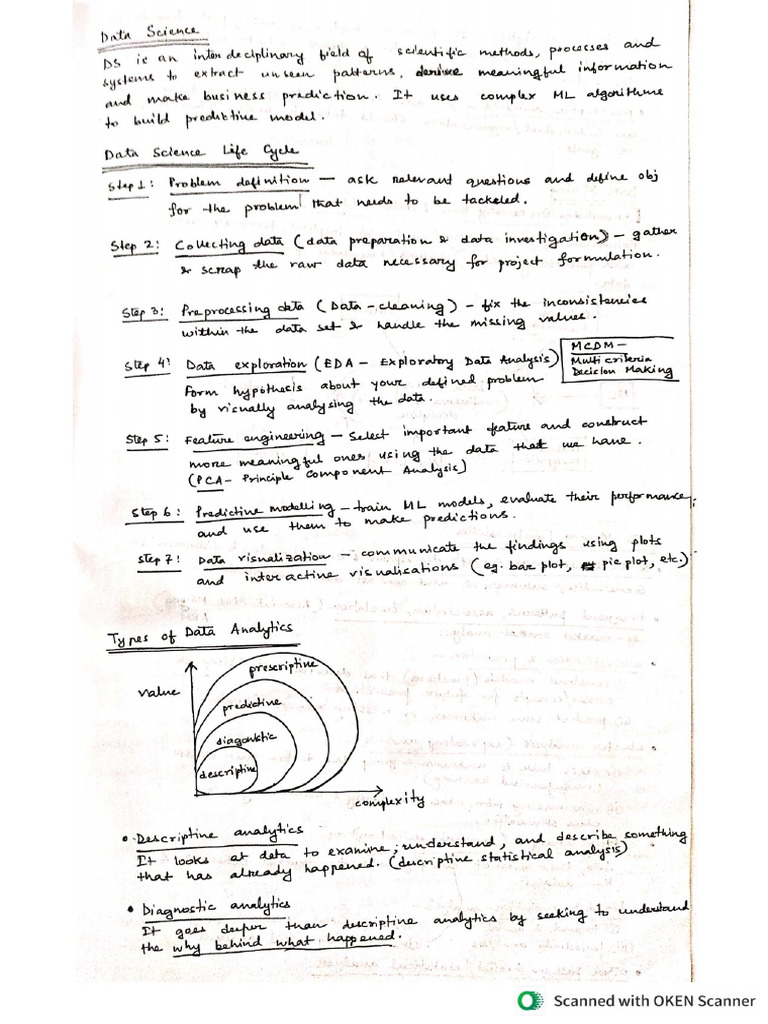 Data Science
DS is an interdeciplinary field of scientific methods, processes and
systems to extract unseen patterns, derive meaningful information
and make business prediction. It uses complex ML algorithms
to build predictive model.
Data Science Life Cycle
Step 1: Problem definition — ask relevant questions and define obj
for the problem that needs to be tackeled.
Step 2: Collecting data (data preparation & data investigation) — gather
& scrap the raw data necessary for project formulation.
Step 3: Preprocessing data (Data-cleaning) — fix the inconsistencies
within the data set & handle the missing values.
Step 4: Data exploration (EDA — Exploratory Data Analysis)
MCDM —
Multi criteria
Decision Making
Form hypothesis about your defined problem
by visually analysing the data.
Step 5: Feature engineering — Select important feature and construct
more meaningful ones using the data that we have.
(PCA — Principle Component Analysis)
Step 6: Predictive modelling — train ML models, evaluate their performance,
and use them to make predictions.
Step 7: Data visualization — communicate the findings using plots
and interactive visualisations (eg. bar plot, pie plot, etc.)
Types of Data Analytics
value
prescriptive
predictive
diagonstic
descriptive
complexity
• Descriptive analytics
It looks at data to examine, understand, and describe something
that has already happened. (descriptive statistical analysis)
• Diagnostic analytics
It goes deeper than descriptive analytics by seeking to understand
the why behind what happened.
Scanned with OKEN Scanner